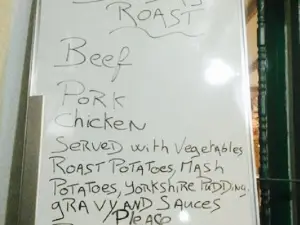 ROAST
Beef
PORK
Chicken
SERVED with Vegetables
ROAST POTATOES, MASH
POTATOES, YORKSHIRE PUDDING,
gRAVY AND SAUCES
Please